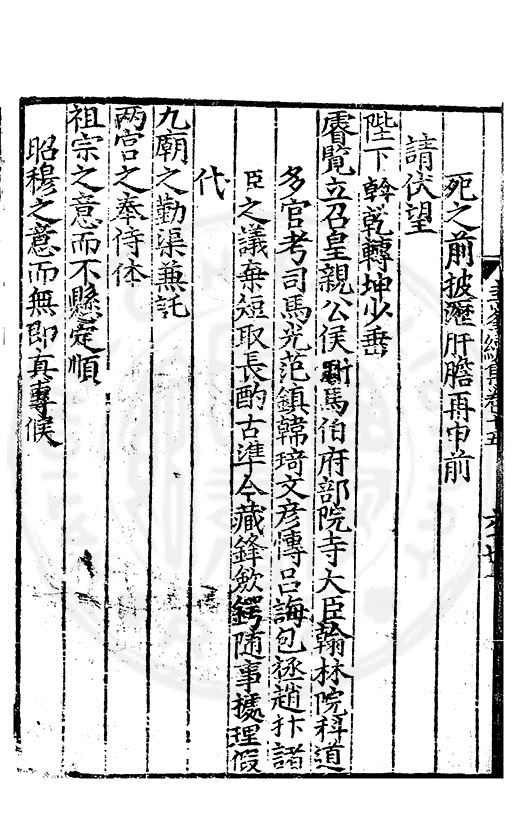 死之前披瀝肝膽再申前
請伏望
陛下斡乾轉坤少垂
睿覽立召皇親公侯駙馬伯府部院寺大臣翰林院科道
多官考司馬光范鎮韓琦文彥博呂誨包拯趙抃諸
臣之議棄短取長酌古準今藏鋒歛鍔隨事據理假
代
九廟之勤渠兼託
两宮之奉侍体
祖宗之意而不懸定順
昭穆之意而無即真專候